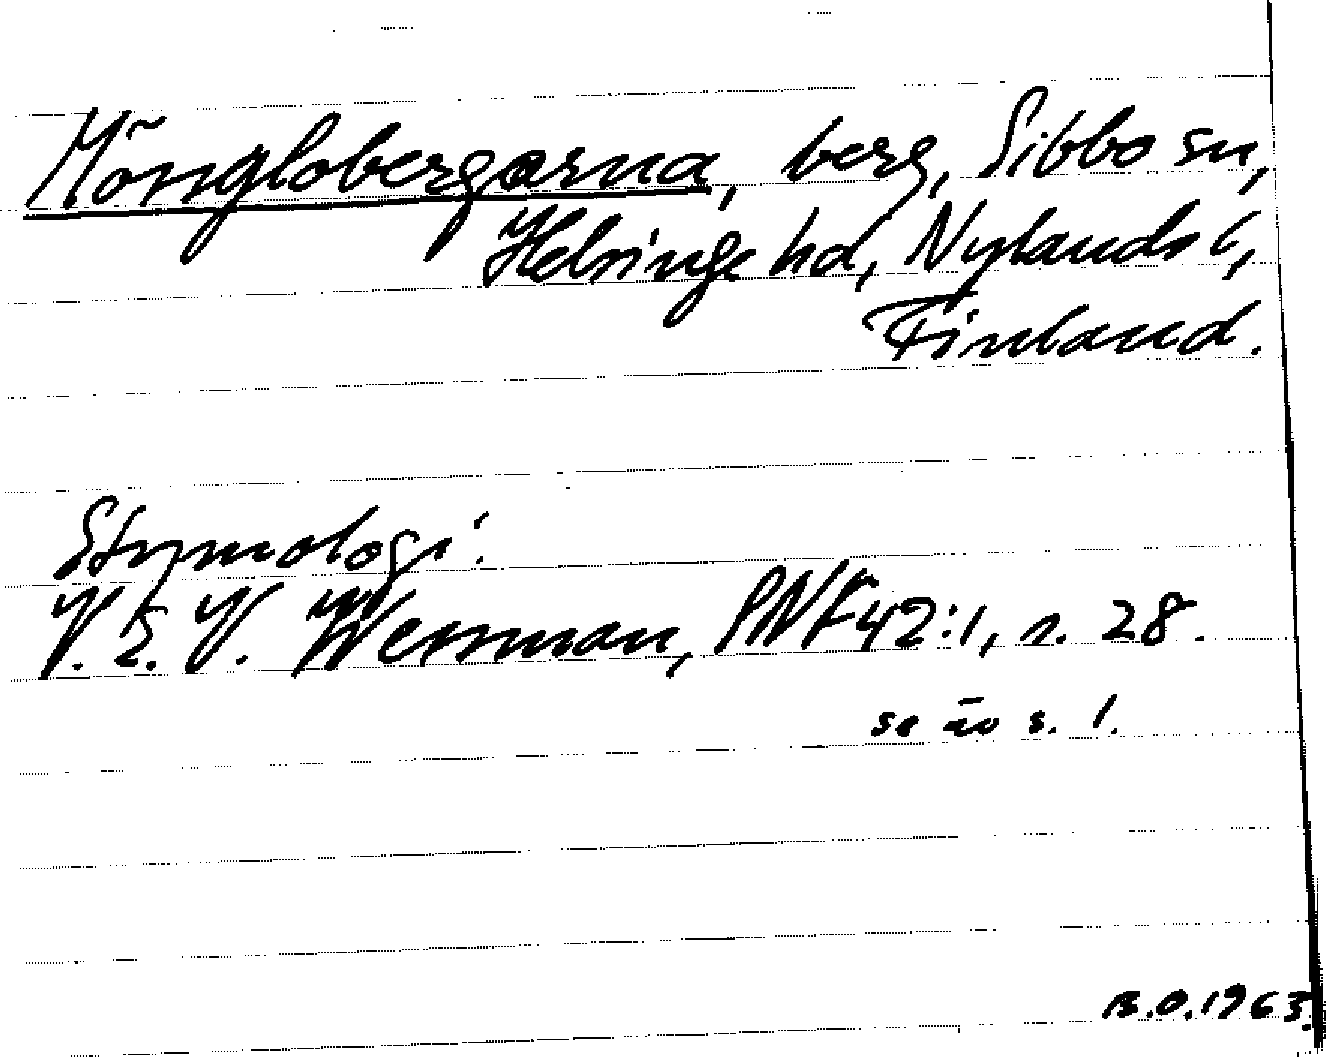 Mönglobergarna, berg, Sibbo sn,
Helsinge hd, Nylands l,
Finland.
Etymologi:
V. E. V. Wessman, SNF 42:1, s. 28.
se äv s. 1.
B.O. 1963.